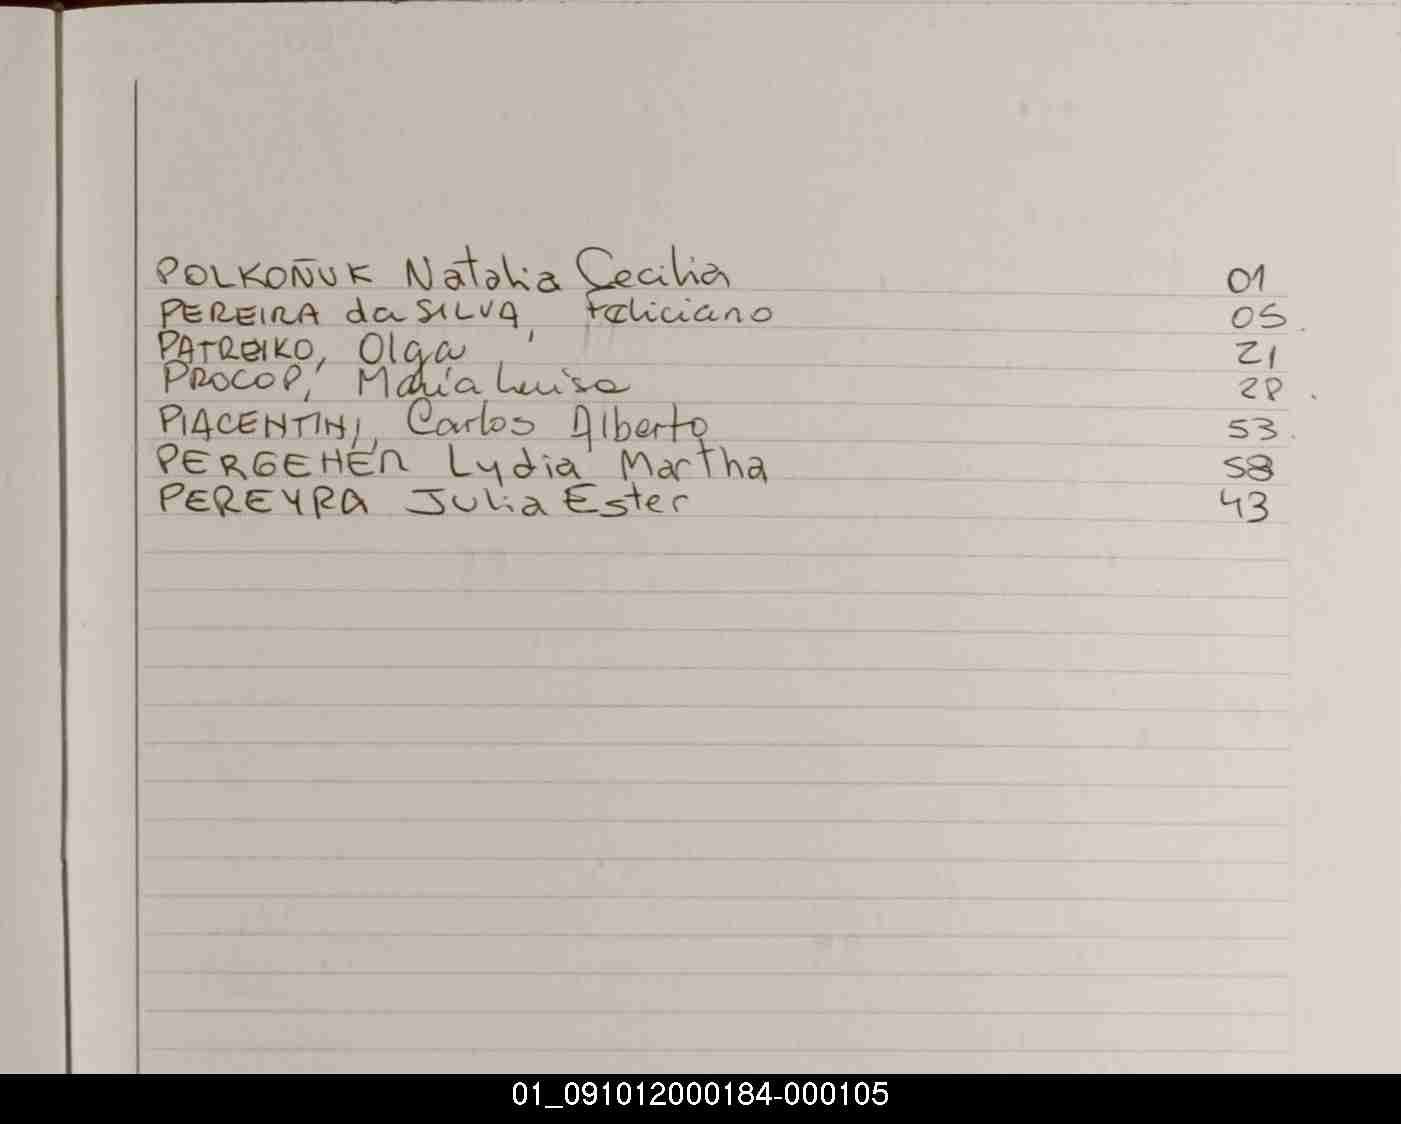 POLKOÑUK Natalia Cecilia 01
PEREIRA da SILVA, Feliciano 05.
PATREIKO, Olga 21
PROCOP, María Luisa 28.
PIACENTINI, Carlos Alberto 53.
Lydia Martha 58
PEREYRA Julia Ester 43
01_091012000184-000105